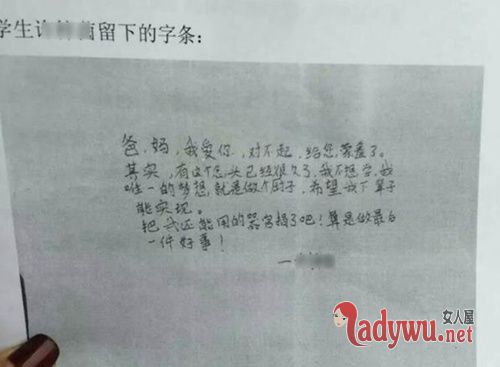 学生许 留下的字条：
爸，妈，我爱你，对不起，给您蒙羞了。
其实，有这个念头已经很久了，我不想学，我
唯一的梦想，就是做个厨子，希望我下辈子
能实现。
把我还能用的器官捐了吧！算是做最后
一件好事！
女人屋
Ladywu.net